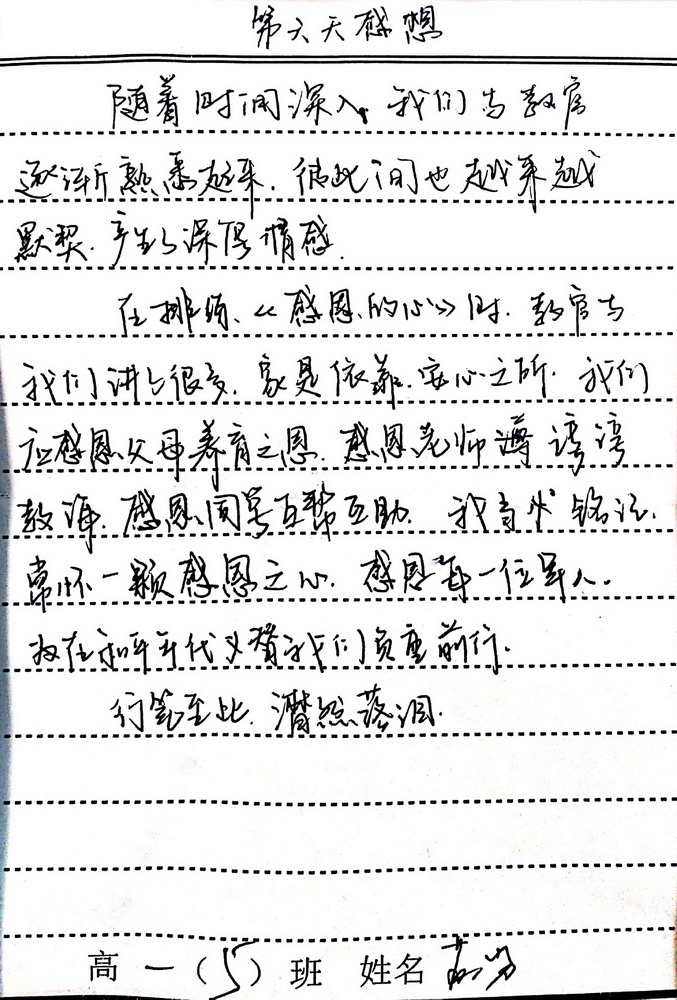 第六天感想
随着时间深入，我们与教官
逐渐熟悉起来，彼此间也越来越
默契，产生了深厚情感。
在排练《感恩的心》时，教官与
我们讲了很多，家是依靠，安心之所，我们
应感恩父母养育之恩，感恩老师谆谆
教诲，感恩同学互帮互助，我当铭记，
常怀一颗感恩之心，感恩每一位军人。
在和平年代义替我们负重前行。
行笔至此，潸然落泪。
高一（5）班 姓名